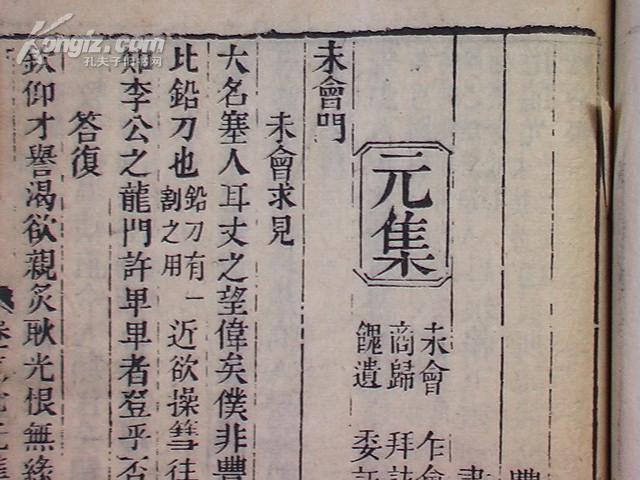 Kongfz.com
孔夫子旧书网
豊
書
元集
未會 乍會
商歸 拜
餽遺 委
未會門
未會求見
大名塞人耳丈之望偉矣僕非豊
比鉛刀也鉛刀有一割之用近欲操篲往
李公之龍門許畢畢者登乎否
答復
欽仰才譽渴欲親炙耿光恨無緣